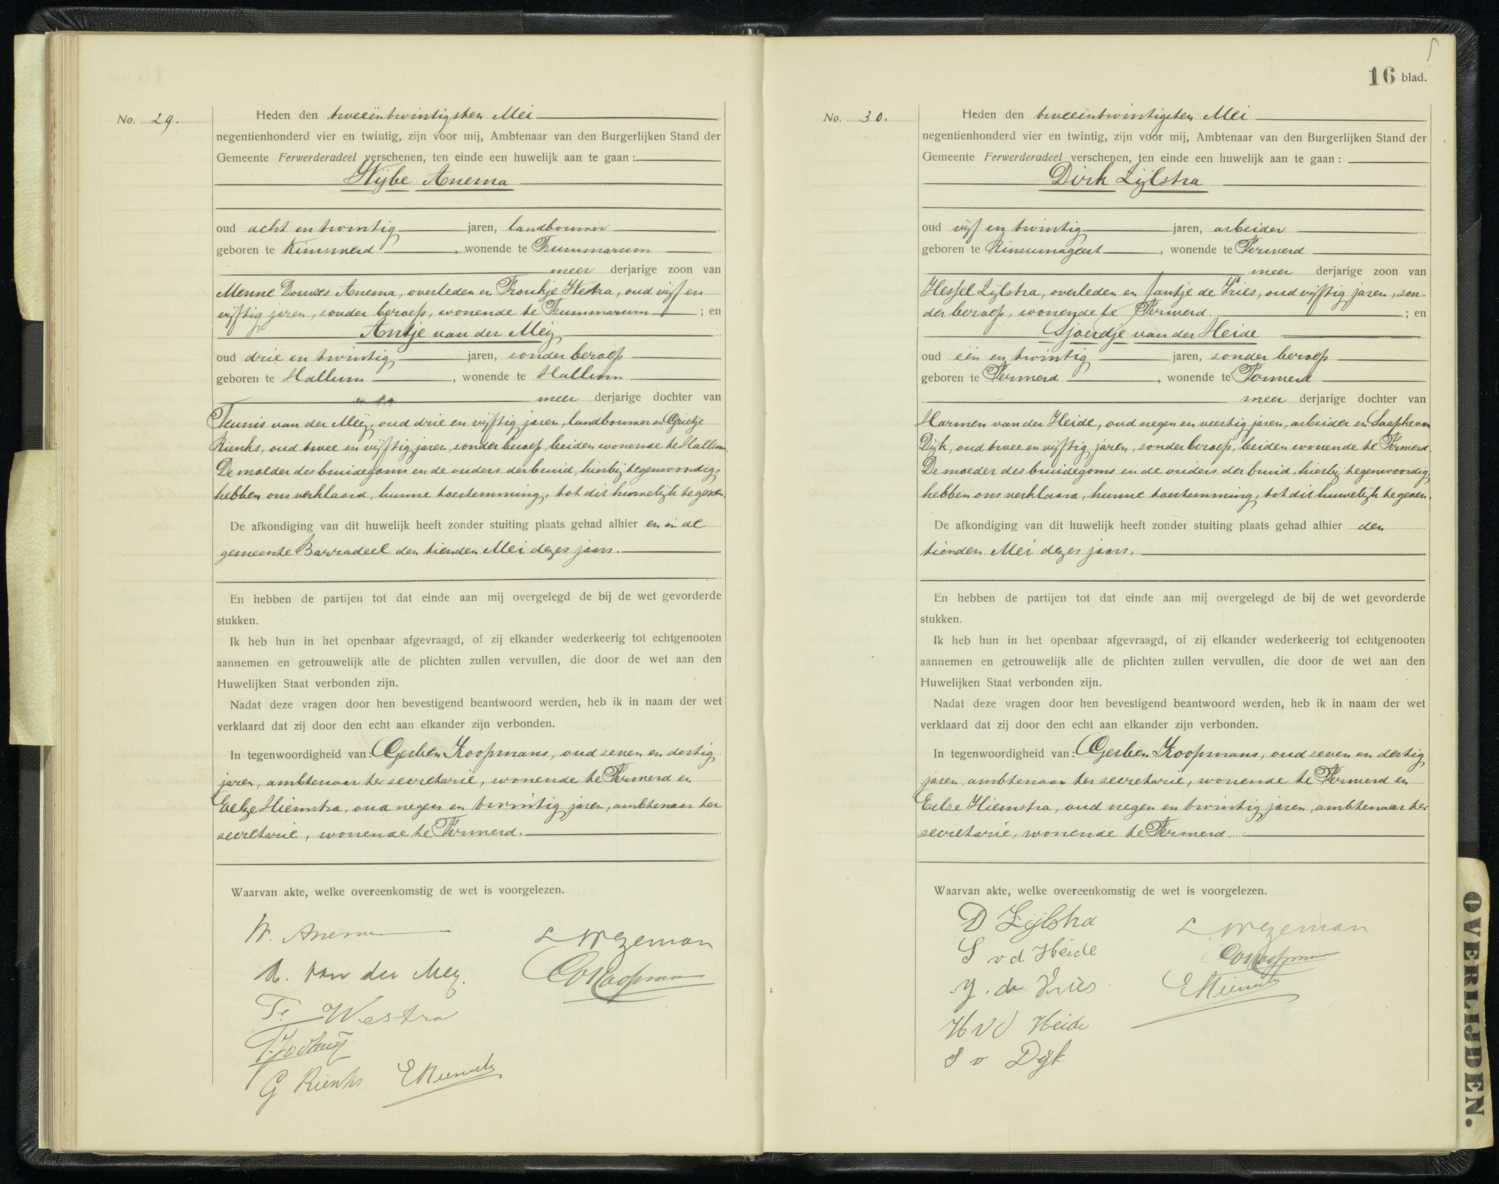 No. 29.
Heden den tweeëntwintigsten Mei
negentienhonderd vier en twintig, zijn voor mij, Ambtenaar van den Burgerlijken Stand der
Gemeente Ferwerderadeel verschenen, ten einde een huwelijk aan te gaan:
Wijbe Anema
oud acht en twintig jaren, landbouwer
geboren te Kimswerd, wonende te Tzummarum
meer derjarige zoon van
Menne Douwes Anema, overleden en Froukje Westra, oud vijf en
vijftig jaren, zonder beroep, wonende te Tzummarum ; en
Antje van der Meij
oud drie en twintig jaren, zonder beroep
geboren te Hallum, wonende te Hallum
meer derjarige dochter van
Teunis van der Meij, oud drie en vijftig jaren, landbouwer en Grietje
Rienks, oud twee en vijftig jaren, zonder beroep, beiden wonende te Hallum.
De moeder des bruidegoms en de ouders der bruid, hierbij tegenwoordig,
hebben ons verklaard, hunne toestemming, tot dit huwelijk te geven.
De afkondiging van dit huwelijk heeft zonder stuiting plaats gehad alhier en in de
gemeente Barradeel den tienden Mei dezes jaars.
En hebben de partijen tot dat einde aan mij overgelegd de bij de wet gevorderde
stukken.
Ik heb hun in het openbaar afgevraagd, of zij elkander wederkeerig tot echtgenooten
aannemen en getrouwelijk alle de plichten zullen vervullen, die door de wet aan den
Huwelijken Staat verbonden zijn.
Nadat deze vragen door hen bevestigend beantwoord werden, heb ik in naam der wet
verklaard dat zij door den echt aan elkander zijn verbonden.
In tegenwoordigheid van Gerben Koopmans, oud zeven en dertig
jaren, ambtenaar ter secretarie, wonende te Ferwerd en
Eelze Hiemstra, oud negen en twintig jaren, ambtenaar ter
secretarie, wonende te Ferwerd.
Waarvan akte, welke overeenkomstig de wet is voorgelezen.
W. Anema
A. van der Mey.
L Wezeman
G Koopmans
Fr Westra
G Rienks
E Hiemstra
16 blad.
No. 30.
Heden den tweeëntwintigsten Mei
negentienhonderd vier en twintig, zijn voor mij, Ambtenaar van den Burgerlijken Stand der
Gemeente Ferwerderadeel verschenen, ten einde een huwelijk aan te gaan:
Dirk Zijlstra
oud vijf en twintig jaren, arbeider
geboren te Rinsumageest, wonende te Ferwerd
meer derjarige zoon van
Hessel Zijlstra, overleden en Jantje de Vries, oud vijftig jaren, zon-
der beroep, wonende te Ferwerd ; en
Sjoerdje van der Heide
oud eén en twintig jaren, zonder beroep
geboren te Ferwerd, wonende te Ferwerd
meer derjarige dochter van
Harmen van der Heide, oud negen en veertig jaren, arbeider en Saapke van
Dijk, oud twee en vijftig jaren, zonder beroep, beiden wonende te Ferwerd.
De moeder des bruidegoms en de ouders der bruid, hierbij tegenwoordig,
hebben ons verklaard, hunne toestemming, tot dit huwelijk te geven.
De afkondiging van dit huwelijk heeft zonder stuiting plaats gehad alhier den
tienden Mei dezes jaars.
En hebben de partijen tot dat einde aan mij overgelegd de bij de wet gevorderde
stukken.
Ik heb hun in het openbaar afgevraagd, of zij elkander wederkeerig tot echtgenooten
aannemen en getrouwelijk alle de plichten zullen vervullen, die door de wet aan den
Huwelijken Staat verbonden zijn.
Nadat deze vragen door hen bevestigend beantwoord werden, heb ik in naam der wet
verklaard dat zij door den echt aan elkander zijn verbonden.
In tegenwoordigheid van Gerben Koopmans, oud zeven en dertig
jaren, ambtenaar ter secretarie, wonende te Ferwerd en
Eelze Hiemstra, oud negen en twintig jaren, ambtenaar ter
secretarie, wonende te Ferwerd.
Waarvan akte, welke overeenkomstig de wet is voorgelezen.
D Zijlstra
S v d Heide
J. de Vries
H v d Heide
S v Dijk
L. Wezeman
G Koopmans
E Hiemstra
OVERLIJDEN.